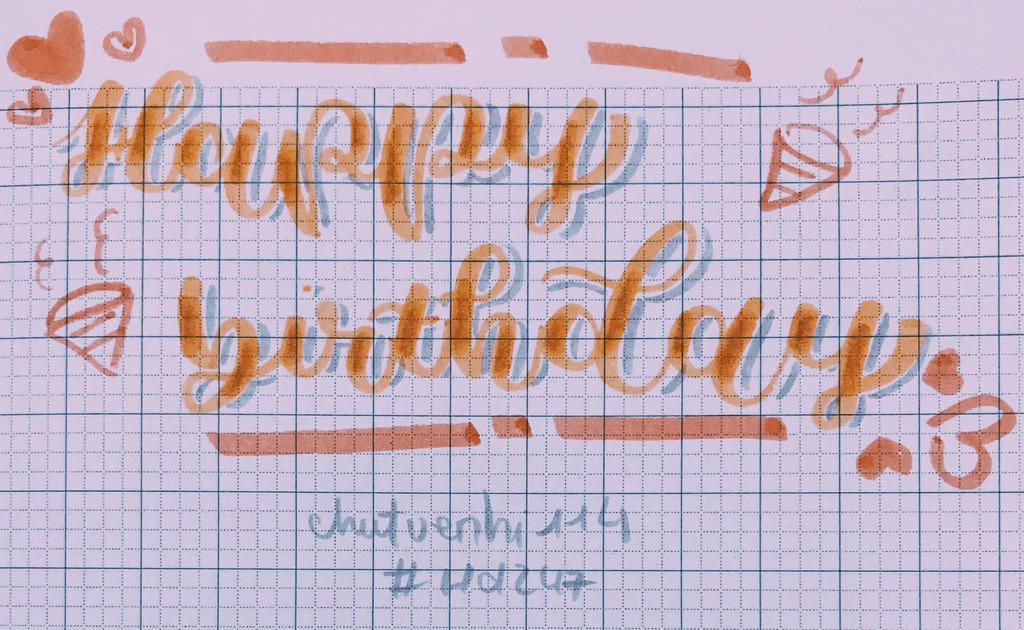 Happy
birthday
chutvenhi 114